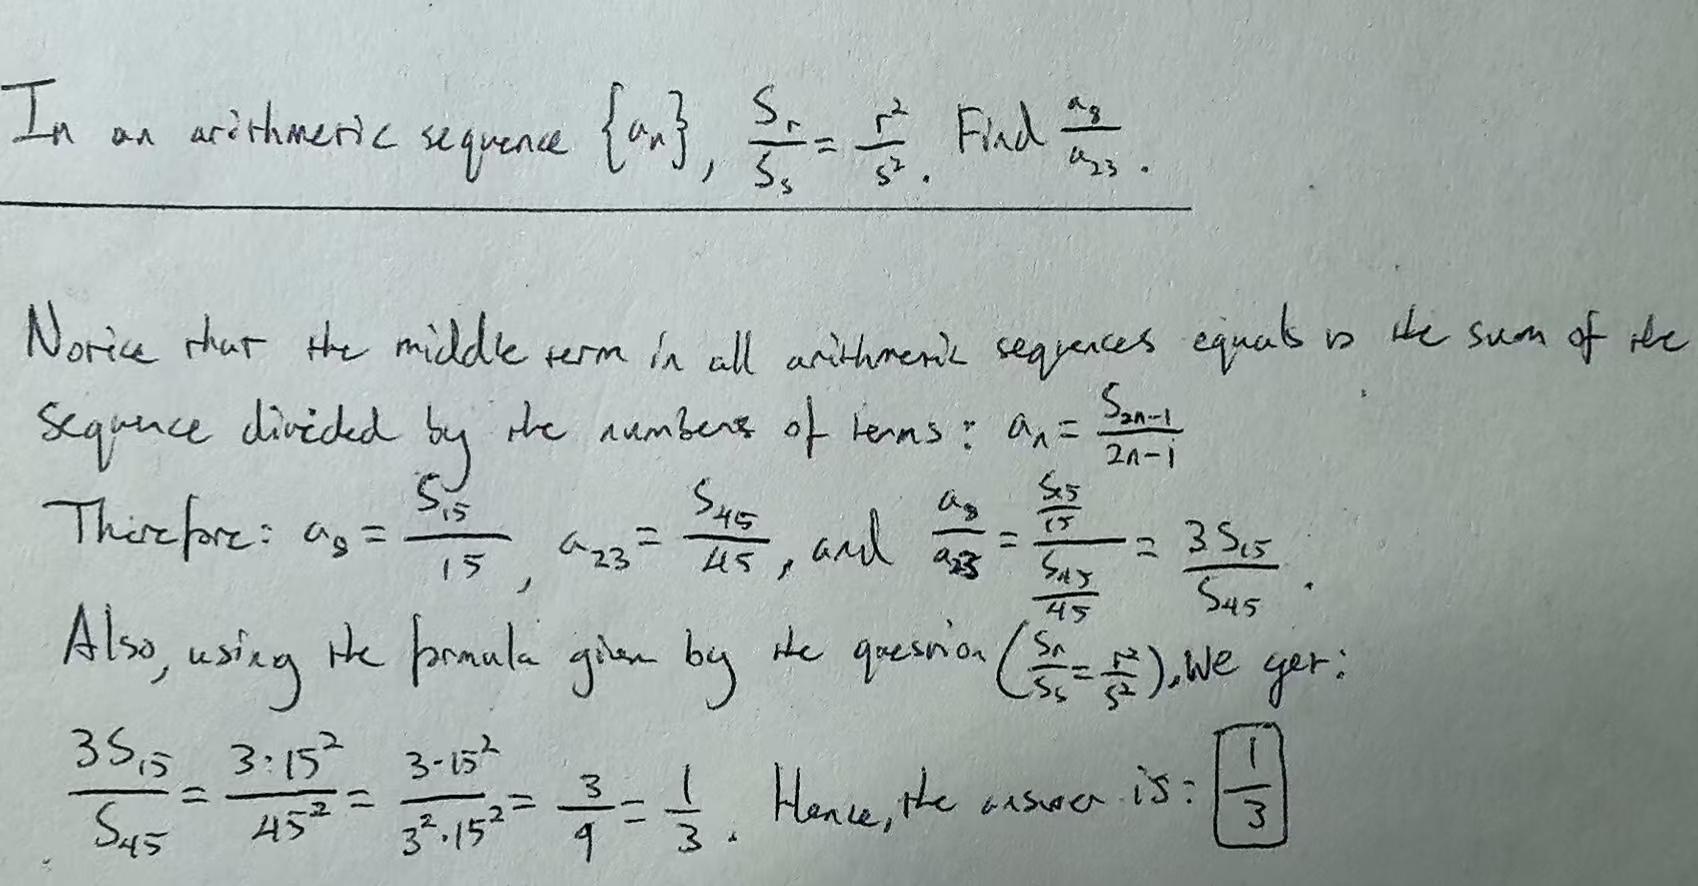 In an arithmetic sequence {aₙ}, Sᵣ/Sₛ = r²/s². Find a₈/a₂₃.
Notice that the middle term in all arithmetic sequences equals is the sum of the
sequence divided by the numbers of terms: aₙ = S₂ₙ₋₁/(2n-1)
Therefore: a₈ = S₁₅/15, a₂₃ = S₄₅/45, and a₈/a₂₃ = (S₁₅/15)/(S₄₅/45) = 3S₁₅/S₄₅.
Also, using the formula given by the question (Sᵣ/Sₛ = r²/s²), We get:
3S₁₅/S₄₅ = 3·15²/45² = 3·15²/(3²·15²) = 3/9 = 1/3. Hence, the answer is: 1/3